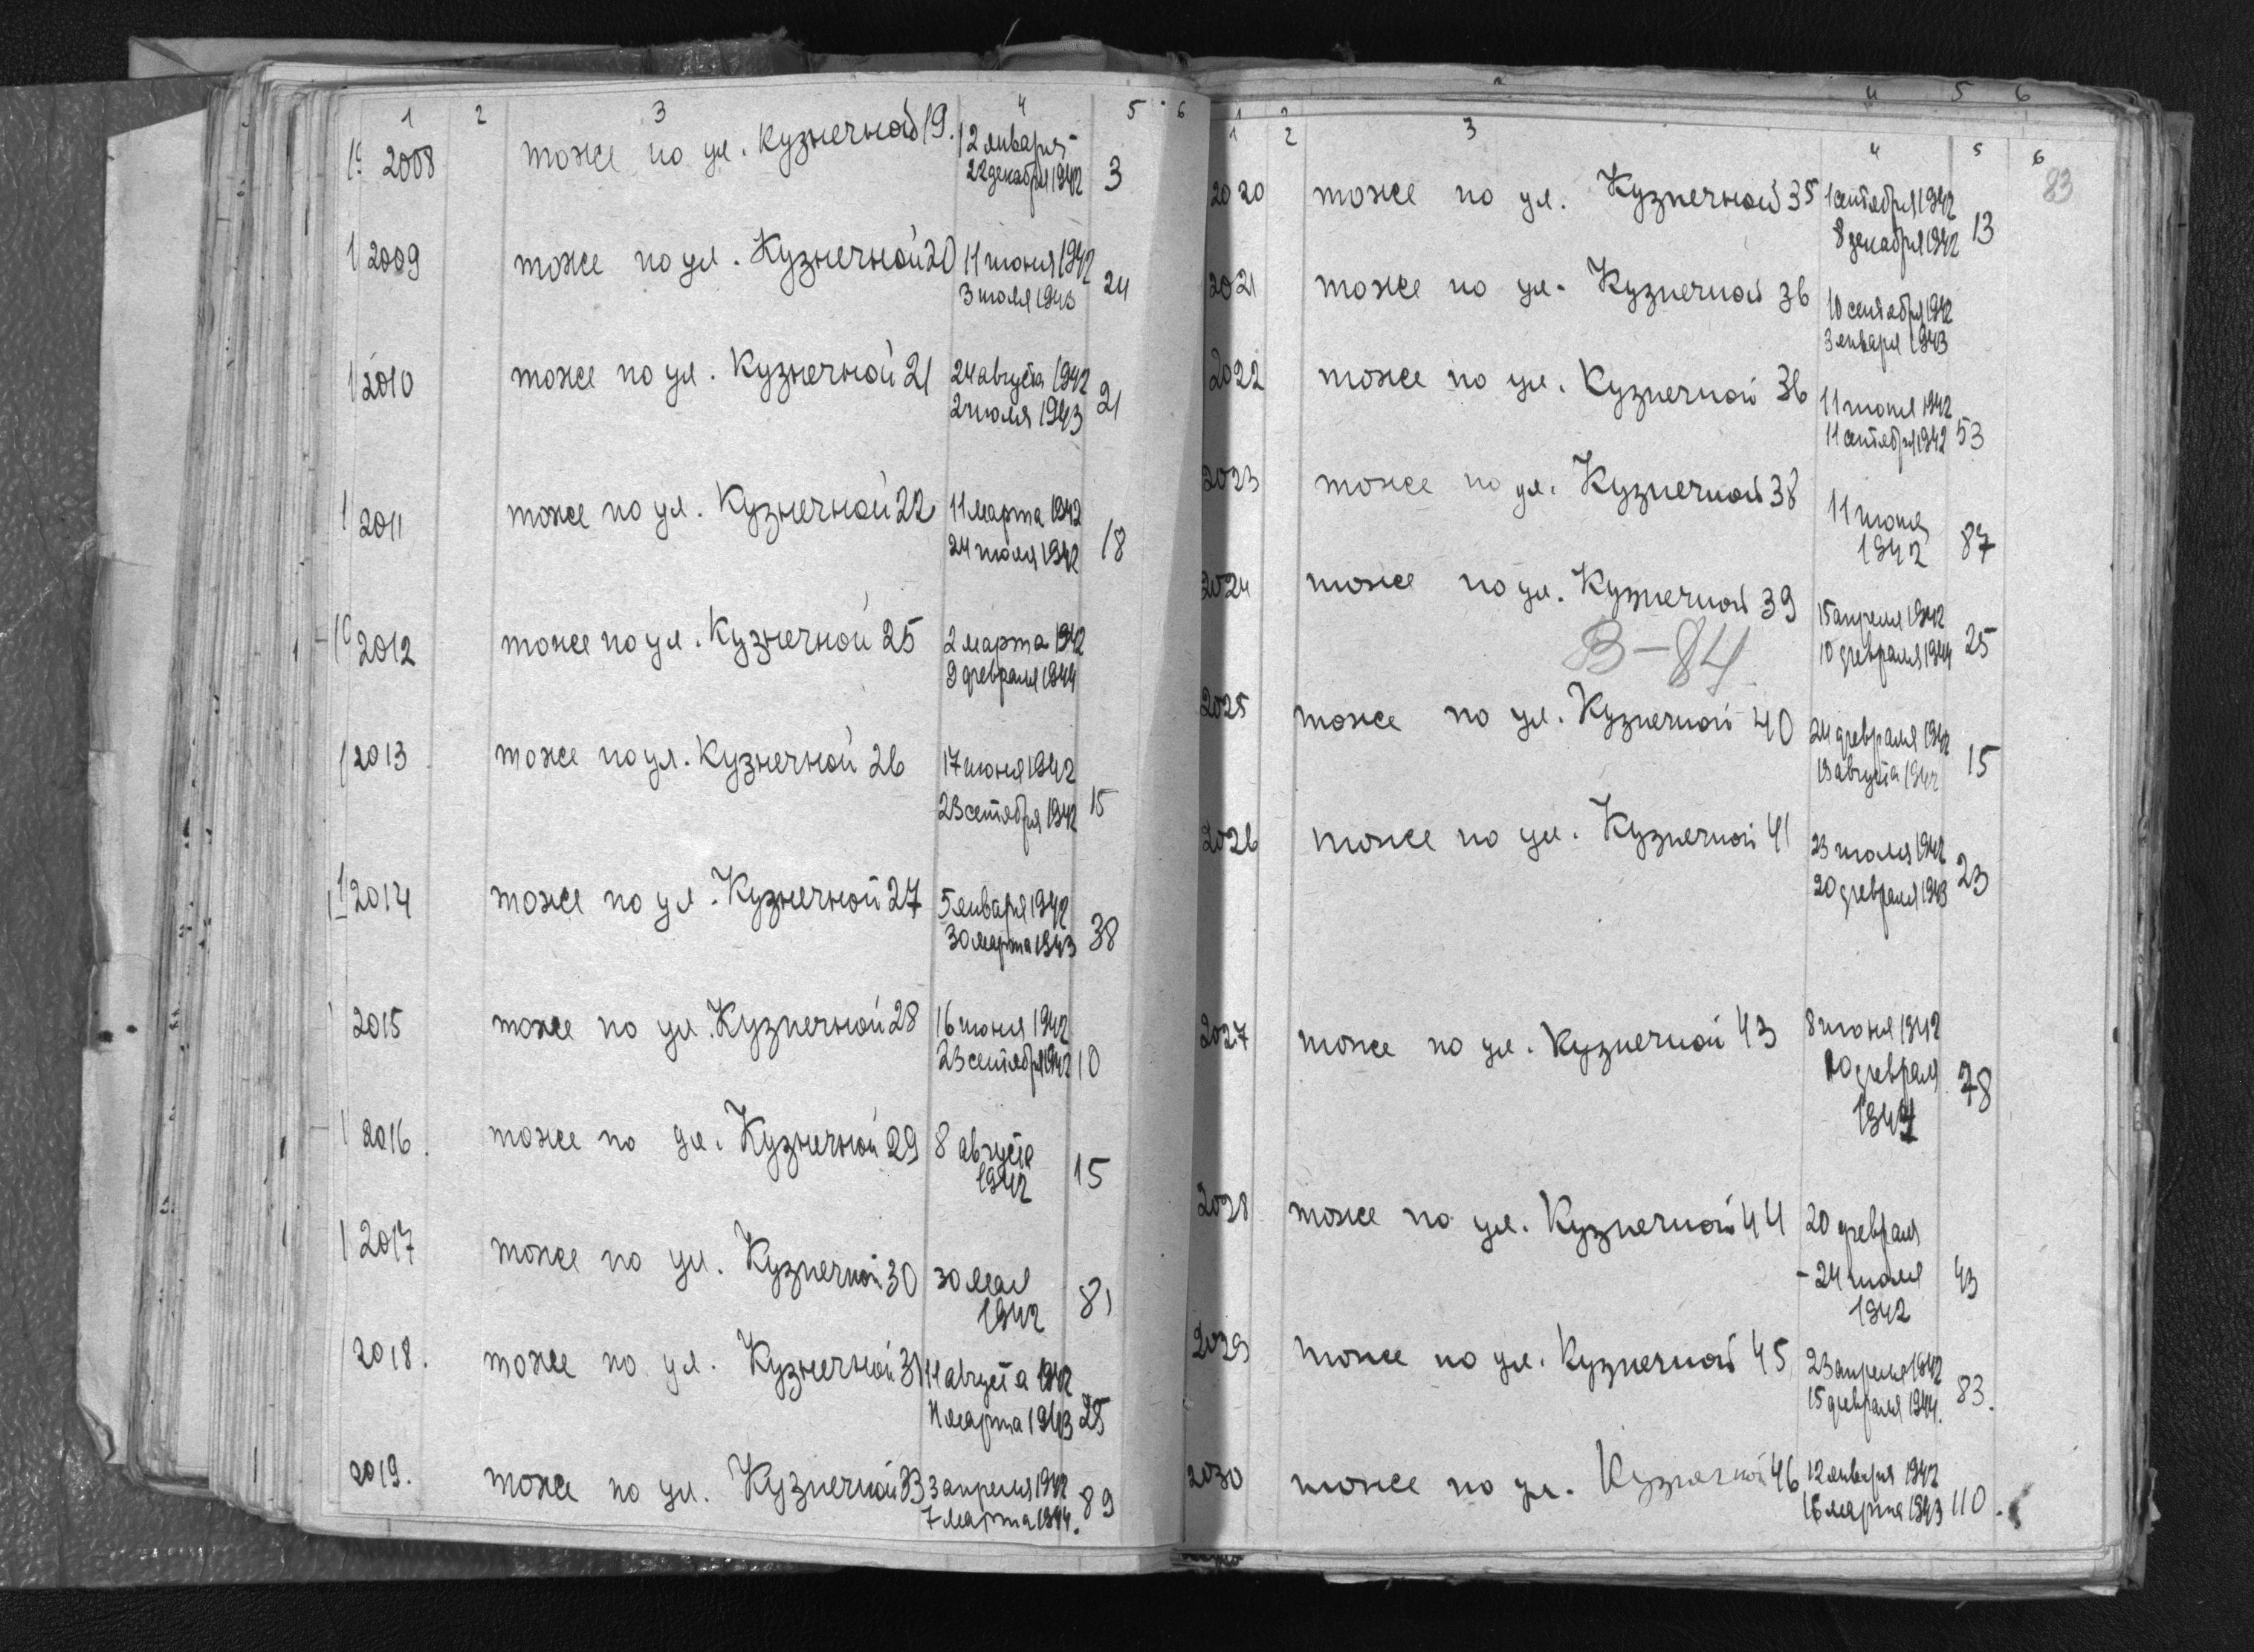 1 2 3 4 5 6
2008 тоже по ул. Кузнечной 19. 12 января-
22 декабря 1942 3
1 2009 тоже по ул. Кузнечной 20 11 июня 1942
3 июля 1943 24
1 2010 тоже по ул. Кузнечной 21 24 августа 1942
2 июля 1943 21
1 2011 тоже по ул. Кузнечной 22 11 марта 1942
24 июля 1942 18
2012 тоже по ул. Кузнечной 25 2 марта 1942
9 февраля 1944
1 2013 тоже по ул. Кузнечной 26 17 июня 1942
23 сетября 1942 15
1 2014 тоже по ул. Кузнечной 27 5 января 1942
30 марта 1943 38
2015 тоже по ул. Кузнечной 28 16 июня 1942
23 сентября 1942 10
1 2016. тоже по ул. Кузнечной 29 8 августа
1942 15
1 2017 тоже по ул. Кузнечной 30 30 мая
1942 81
1 2018. тоже по ул. Кузнечной 31 11 августа 1942
11 марта 1943 25
2019. тоже по ул. Кузнечной 33 3 апреля 1942
7 марта 1944. 89
4 5 6
1 2 3 4 5 6
83
2020 тоже по ул. Кузнечной 35 1 сентября 1942
8 декабря 1942 13
2021 тоже по ул. Кузнечной 36 10 сентября 1942
3 января 1943
2022 тоже по ул. Кузнечной 36 11 июня 1942
11 сентября 1942 53
2023 тоже по ул. Кузнечной 38 11 июня
1942 87
2024 тоже по ул. Кузнечной 39 15 апреля 1942
10 февраля 1944 25
В-84
2025 тоже по ул. Кузнечной 40 24 февраля 1942
19 августа 1942 15
2026 тоже по ул. Кузнечной 41 23 июля 1942
20 февраля 1943 23
2027 тоже по ул. Кузнечной 43 8 июня 1942
10 февраля
1944 78
2028 тоже по ул. Кузнечной 44 20 февраля
- 24 июля
1942 43
2029 тоже по ул. Кузнечной 45 23 апреля 1942
15 февраля 1944. 83.
2030 тоже по ул. Кузнечной 46 12 января 1942
16 марта 1943 110.